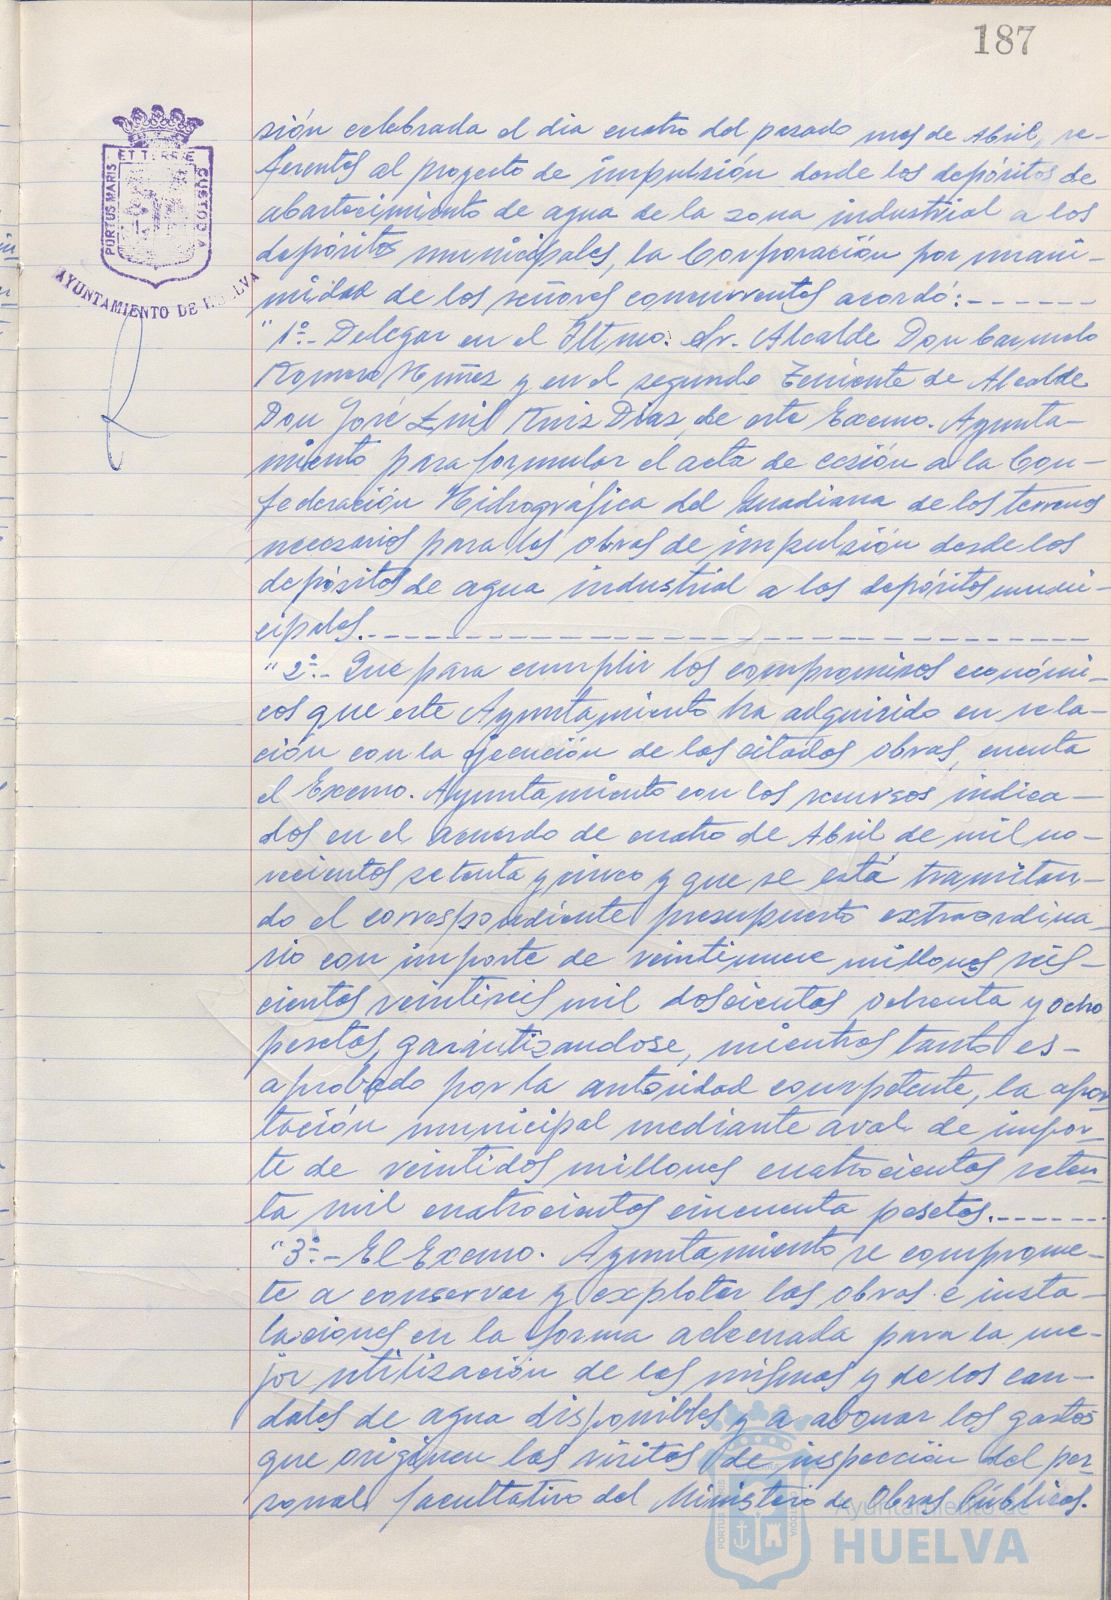 187
PORTUS MARIS ET TERRE CUSTODIA
AYUNTAMIENTO DE HUELVA
sión celebrada el dia cuatro del pasado mes de Abril, re-
ferentes al proyecto de impulsión desde los depósitos de
abastecimiento de agua de la zona industrial a los
depósitos municipales, la Corporación por unani-
midad de los señores concurrentes acordó:------
"1º.- Delegar en el Iltmo. Sr. Alcalde Don Carmelo
Romero Núñez y en el segundo Teniente de Alcalde
Don José Luis Ruiz Diaz, de este Excmo. Ayunta-
miento para formular el acta de cesión a la Con-
federación Hidrográfica del Guadiana de los terrenos
necesarios para las obras de impulsión desde los
depósitos de agua industrial a los depósitos muni-
cipales.------------------------
"2º.- Que para cumplir los compromisos económi-
cos que este Ayuntamiento ha adquirido en rela-
ción con la ejecución de las citadas obras, cuenta
el Excmo. Ayuntamiento con los recursos indica-
dos en el acuerdo de cuatro de Abril de mil no-
vecientos setenta y cinco y que se está tramitan-
do el correspondiente presupuesto extraordina-
rio con importe de veintinueve millones seis-
cientos veintiseis mil doscientas ochenta y ocho
pesetas, garantizandose, mientras tanto es-
aprobado por la autoridad competente, la apor-
tación municipal mediante aval de impor-
te de veintidos millones cuatrocientas seten-
ta mil cuatrocientas cincuenta pesetas.-------
"3º.- El Excmo. Ayuntamiento se comprome-
te a conservar y explotar las obras e insta-
laciones en la forma adecuada para la me-
jor utilización de las mismas y de los cau-
dales de agua disponibles y a abonar los gastos
que originen las visitas de inspección del per-
sonal facultativo del Ministerio de Obras Públicas.
Ayuntamiento de
HUELVA